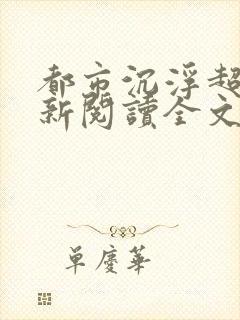 都市沉浮超
新閱讀全文
單慶華